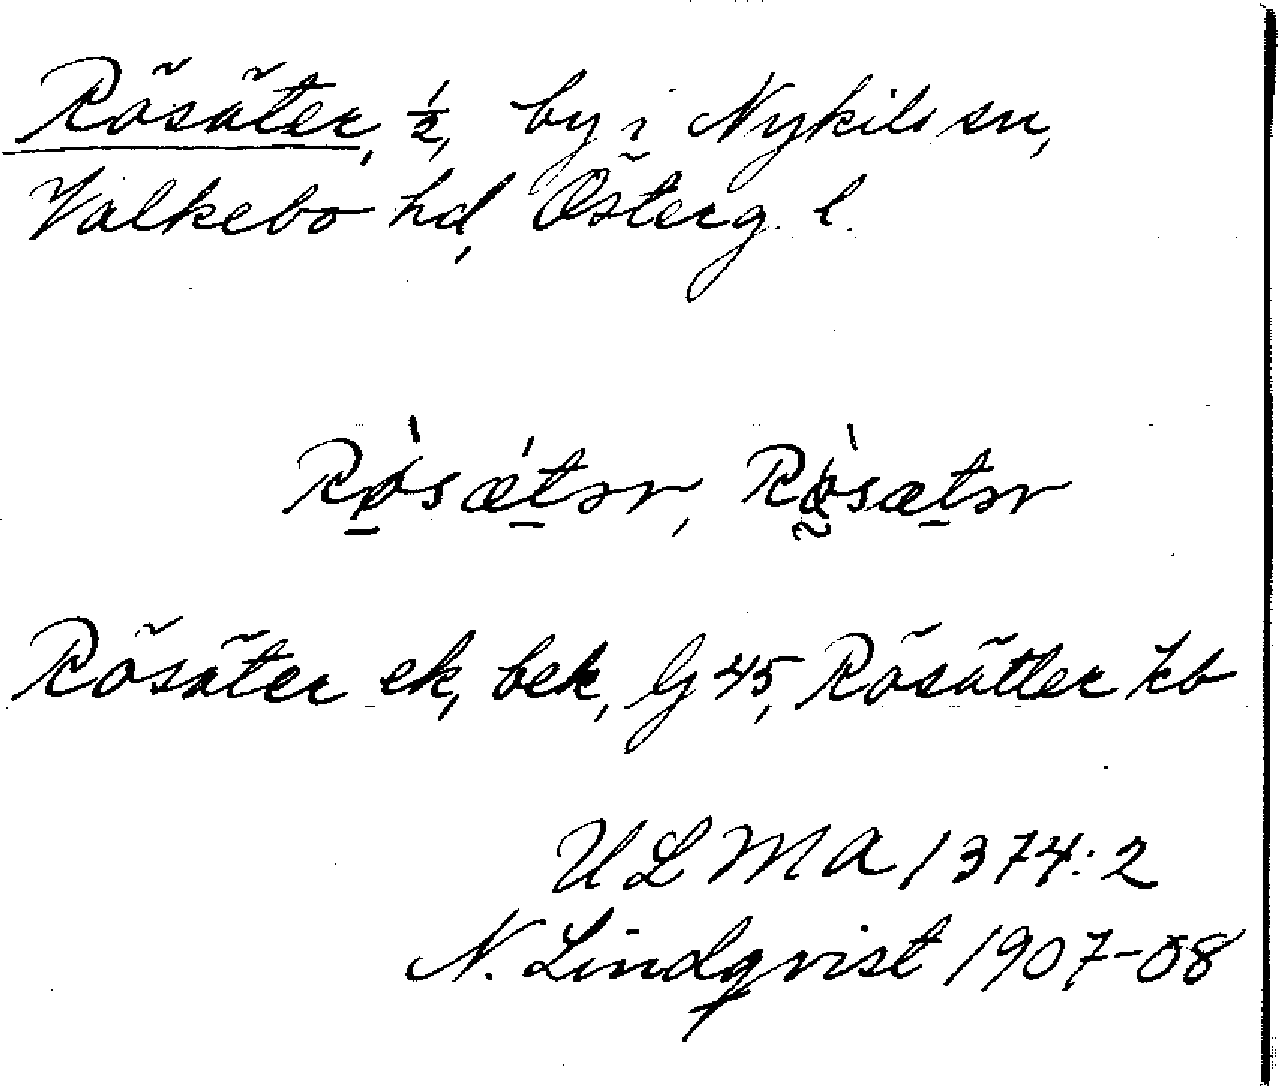 Rösäter, 1/2, by i Nykils sn,
Valkebo hd, Österg. l.
Rösäter ek, bek, G 45, Rösätter kb
ULMA 1374:2
N. Lindqvist 1907-08